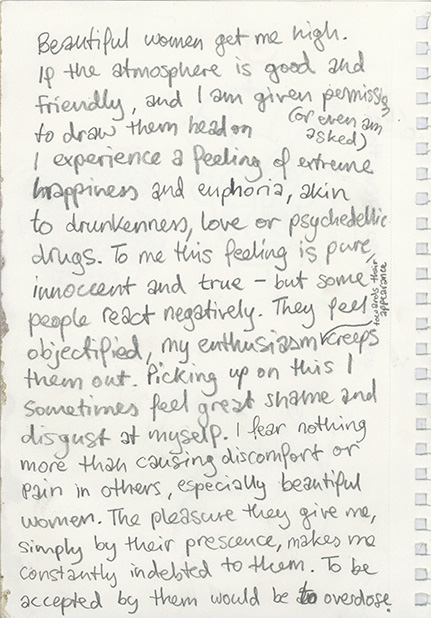 Beautiful women get me high.
If the atmosphere is good and
friendly, and I am given permission
(or even am
to draw them head on
asked)
I experience a feeling of extreme
happiness and euphoria, akin
to drunkenness, love or psychedellic
drugs. To me this feeling is pure,
innoccent and true – but some
people react negatively. They feel
objectified, my enthusiasm creeps
towards their
appearance
them out. Picking up on this I
sometimes feel great shame and
disgust at myself. I fear nothing
more than causing discomfort or
pain in others, especially beautiful
women. The pleasure they give me,
simply by their prescence, makes me
constantly indebted to them. To be
accepted by them would be to overdose.